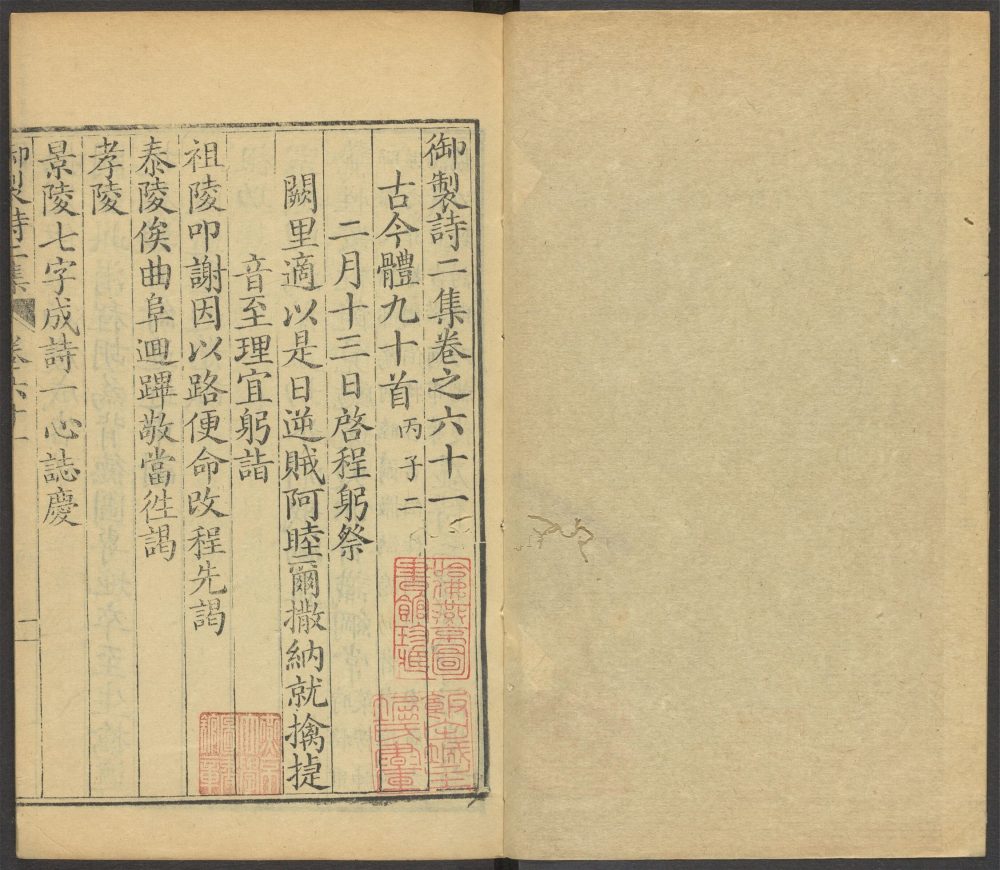 御製詩二集卷之六十一
古今體九十首丙子二
二月十三日啓程躬祭
闕里適以是日逆賊阿睦爾撒納就擒捷
音至理宜躬詣
祖陵叩謝因以路便命改程先謁
泰陵俟曲阜迴蹕敬當徃謁
孝陵
景陵七字成詩一心誌慶
御製詩二集 卷六十一 一
燕京圖
書館珍藏